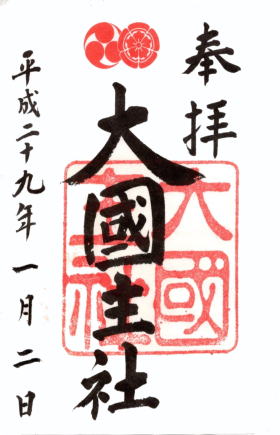 奉拝
大國主社
平成二十九年一月二日
大國
主社